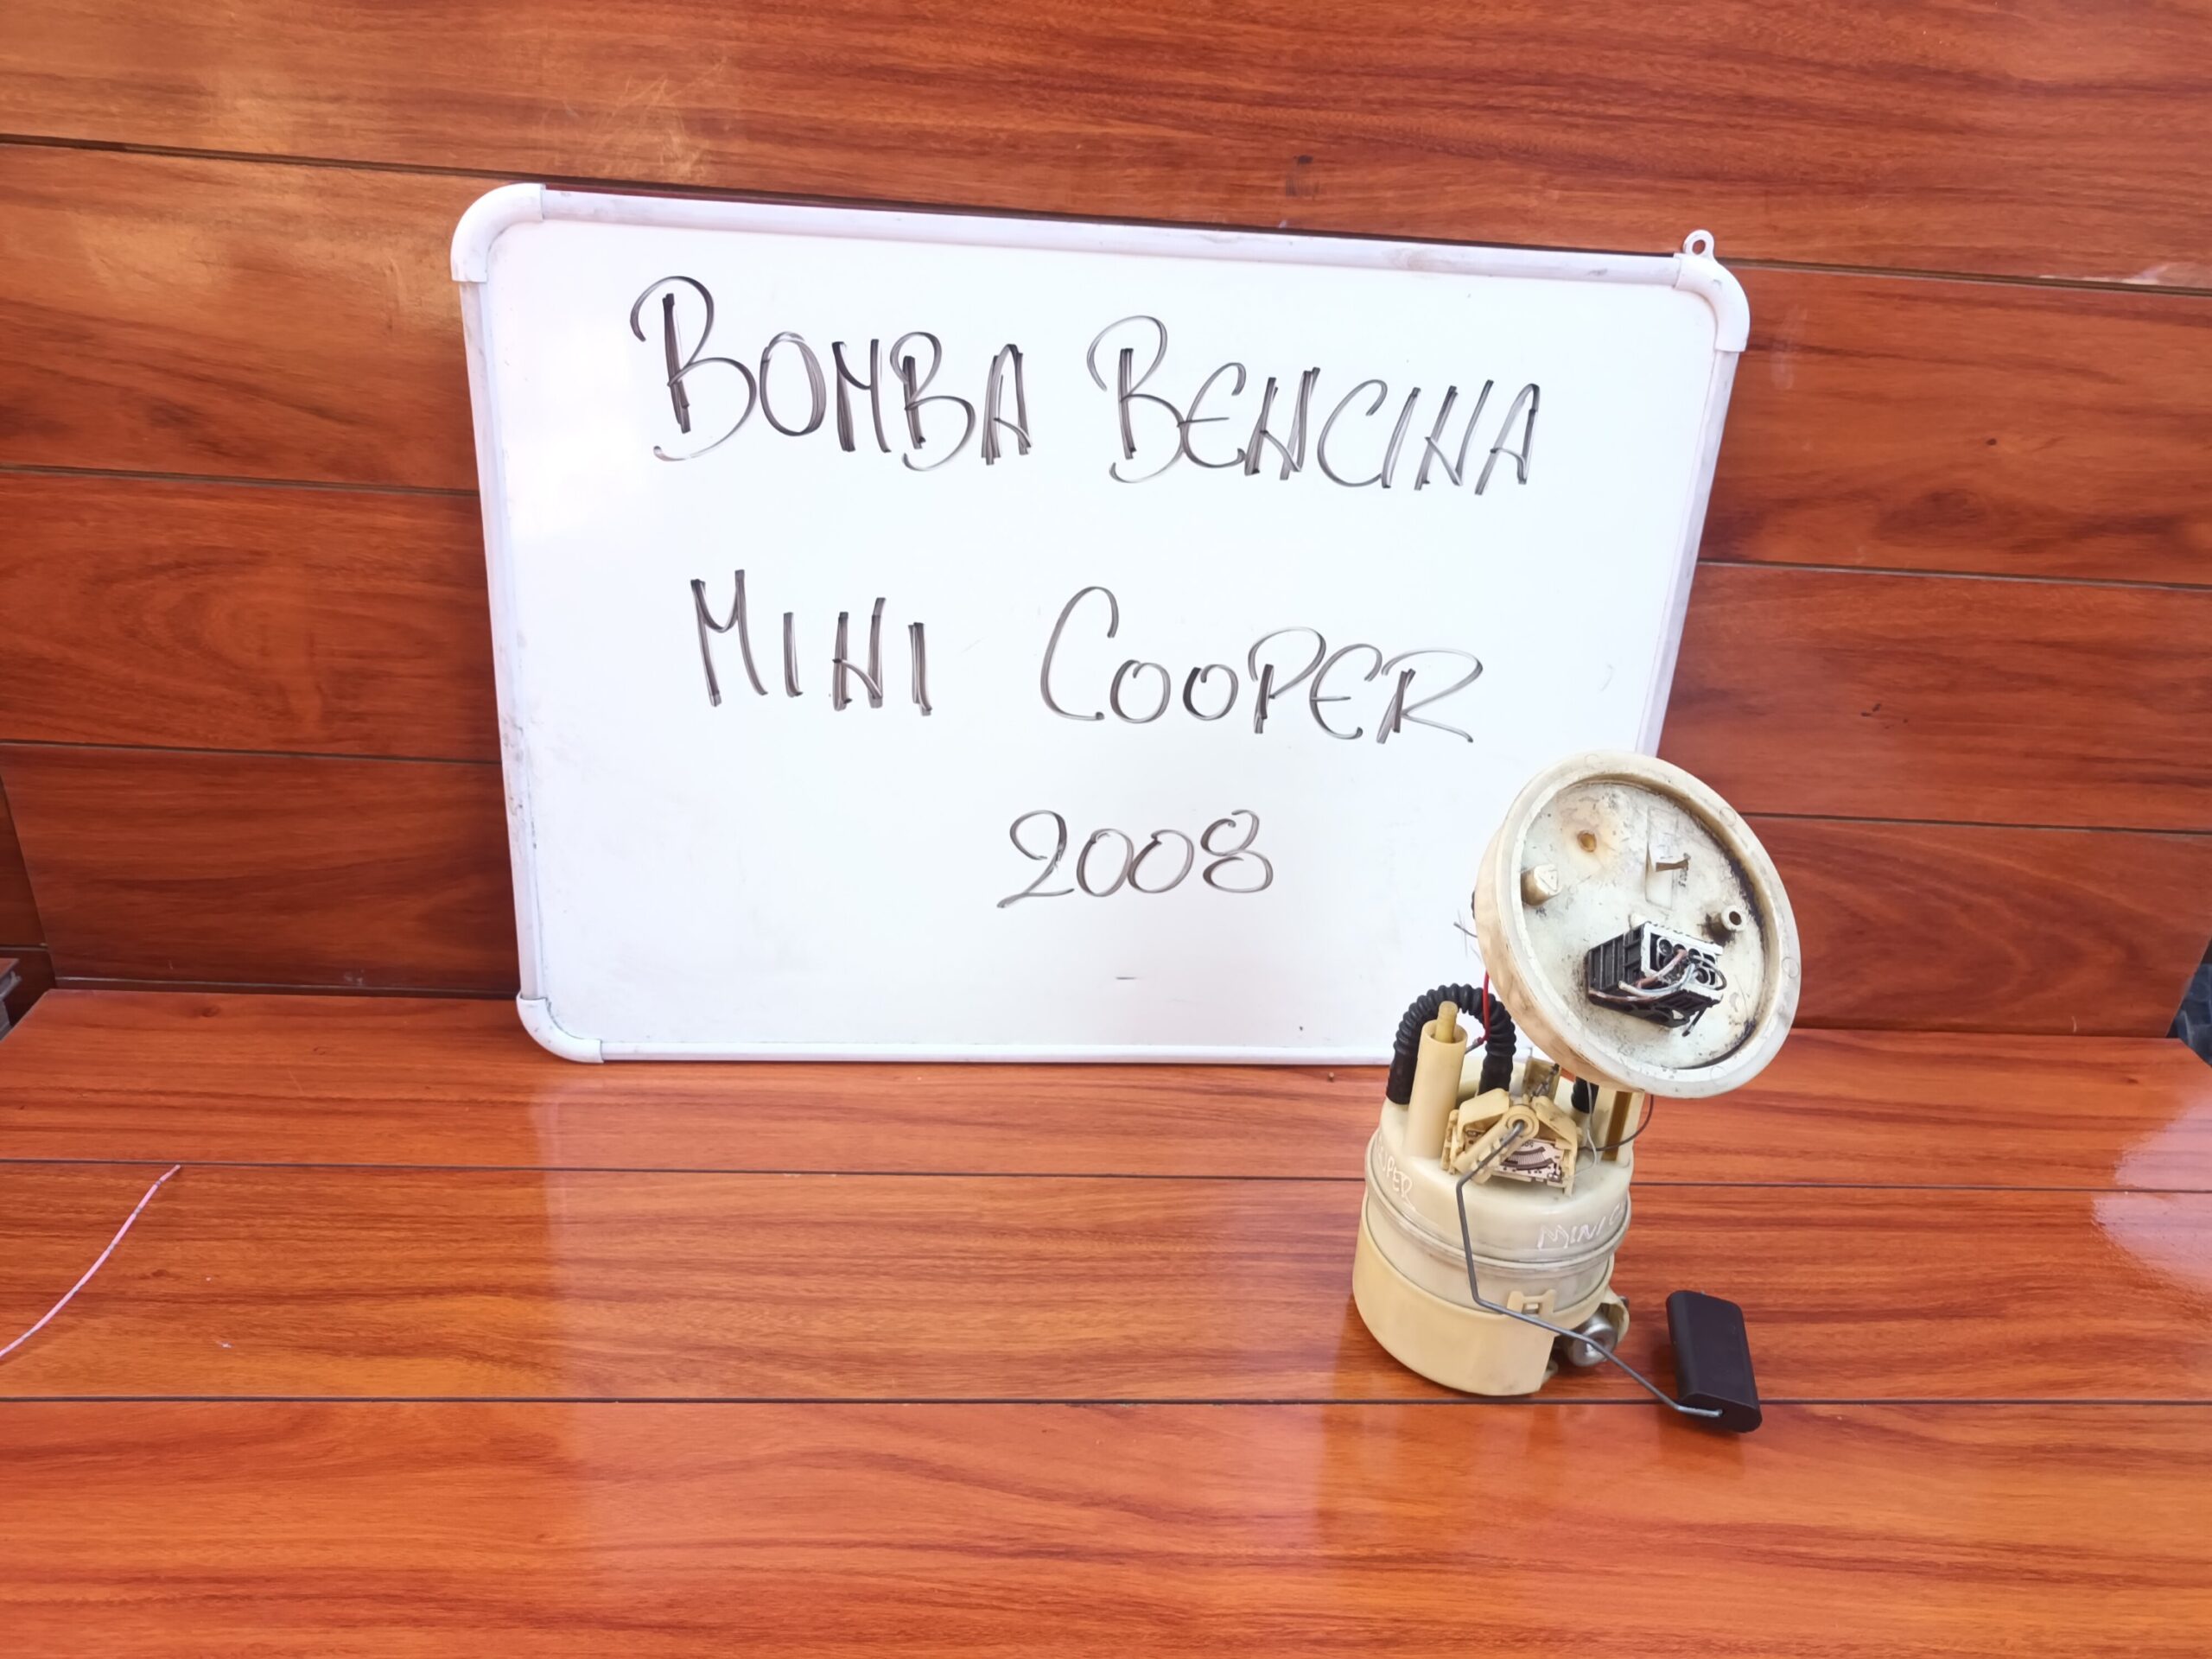 BOMBA BENCINA
MINI COOPER
2008
PER
MINI C